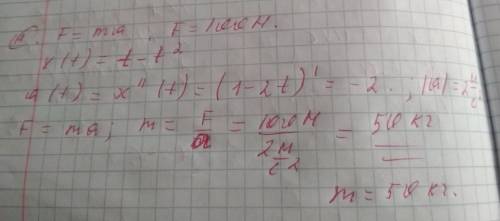 F = ma, F = 100 Н.
x(t) = t - t²
a(t) = x''(t) = (1-2t)' = -2. ; |a| = 2 м/с²
F = ma; m = F/a = 100 Н / 2 м/с² = 50 кг
m = 50 кг.